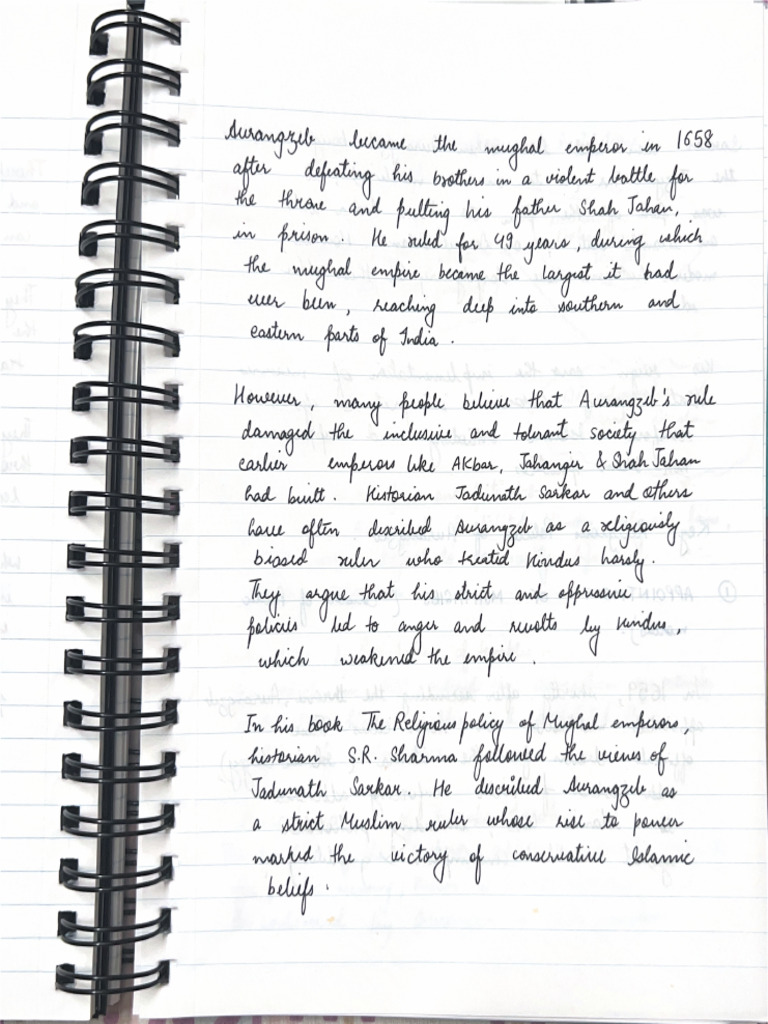 Aurangzeb became the mughal emperor in 1658
after defeating his brothers in a violent battle for
the throne and putting his father Shah Jahan,
in prison. He ruled for 49 years, during which
the mughal empire became the largest it had
ever been, reaching deep into southern and
eastern parts of India.
However, many people believe that Aurangzeb's rule
damaged the inclusive and tolerant society that
earlier emperors like Akbar, Jahangir & Shah Jahan
had built. Historian Jadunath Sarkar and others
have often described Aurangzeb as a religiously
biased ruler who treated Hindus harsly.
They argue that his strict and oppressive
policies led to anger and revolts by Hindus,
which weakened the empire.
In his book The Religious policy of Mughal emperors,
historian S.R. Sharma followed the views of
Jadunath Sarkar. He described Aurangzeb as
a strict Muslim ruler whose rise to power
marked the victory of conservative Islamic
beliefs.